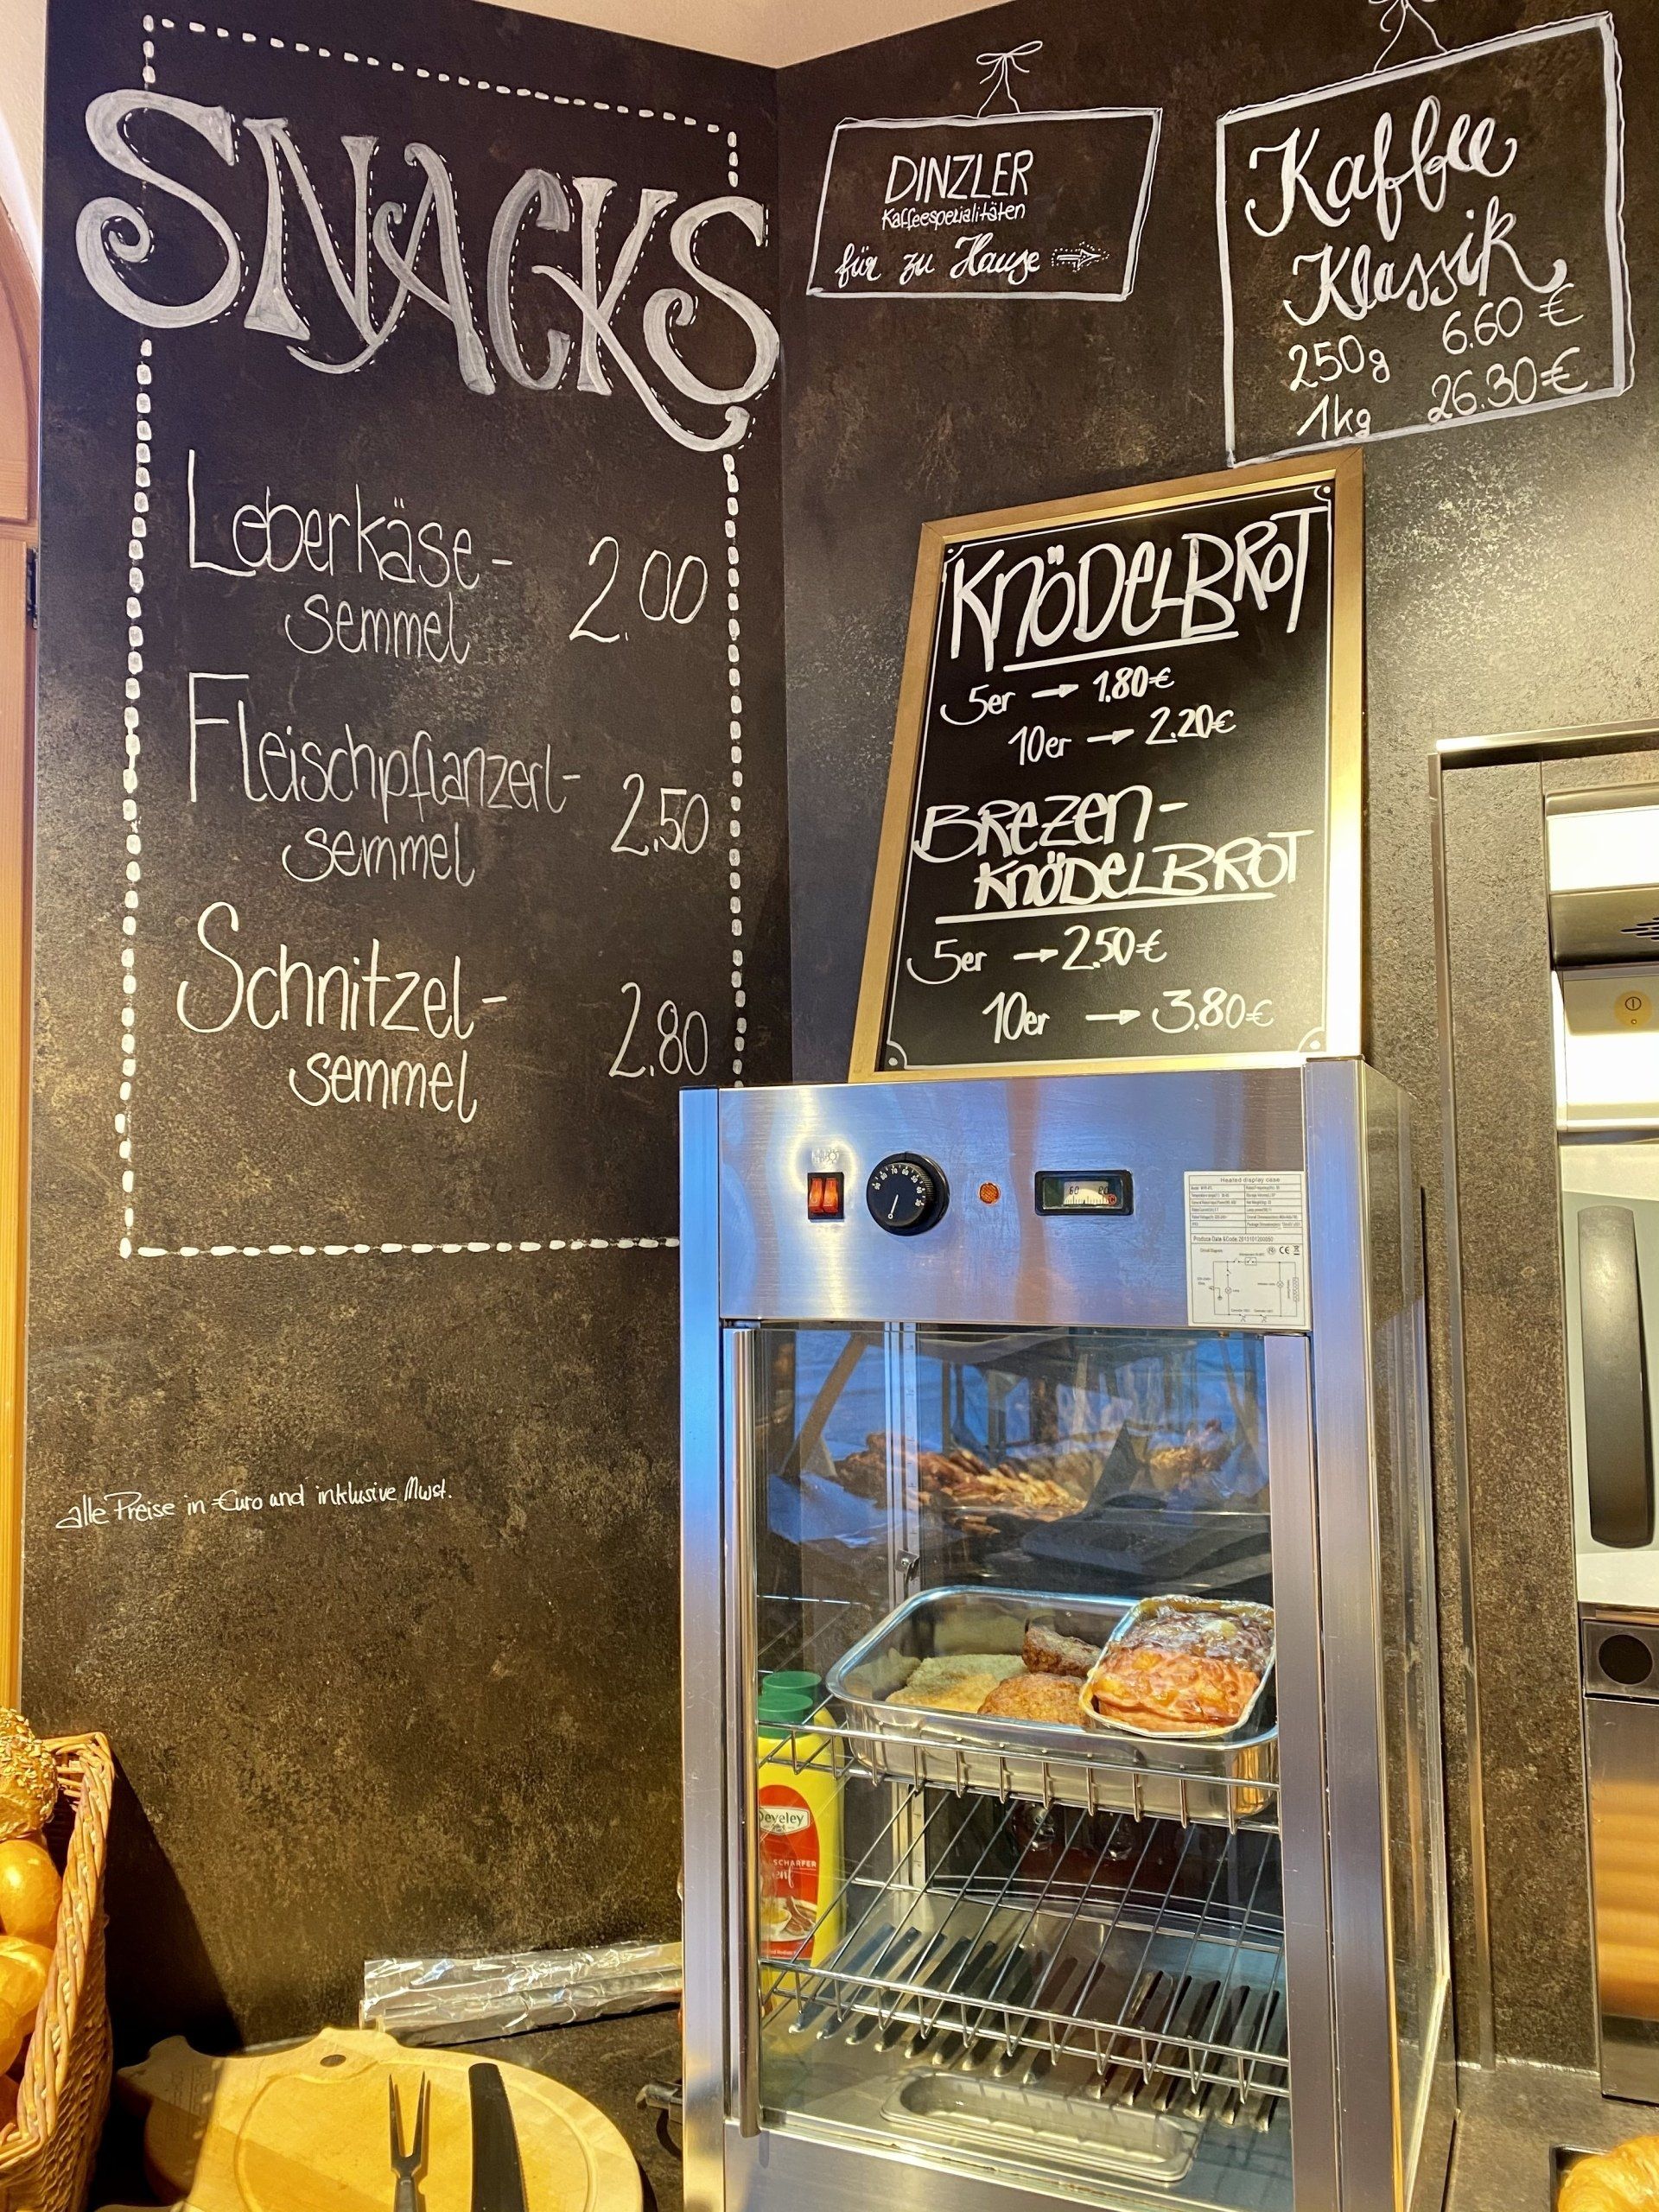 SNACKS
Leberkäse-
semmel 2.00
Fleischpflanzerl-
semmel 2.50
Schnitzel-
semmel 2.80
alle Preise in Euro und inklusive Mwst.
DINZLER
Kaffeespezialitäten
für zu Hause
Kaffee
Klassik
250g 6.60 €
1kg 26.30 €
KNÖDELBROT
5er → 1.80€
10er → 2.20€
BREZEN-
KNÖDELBROT
5er → 2.50€
10er → 3.80€
Heated display case
Develey
SCHARFER